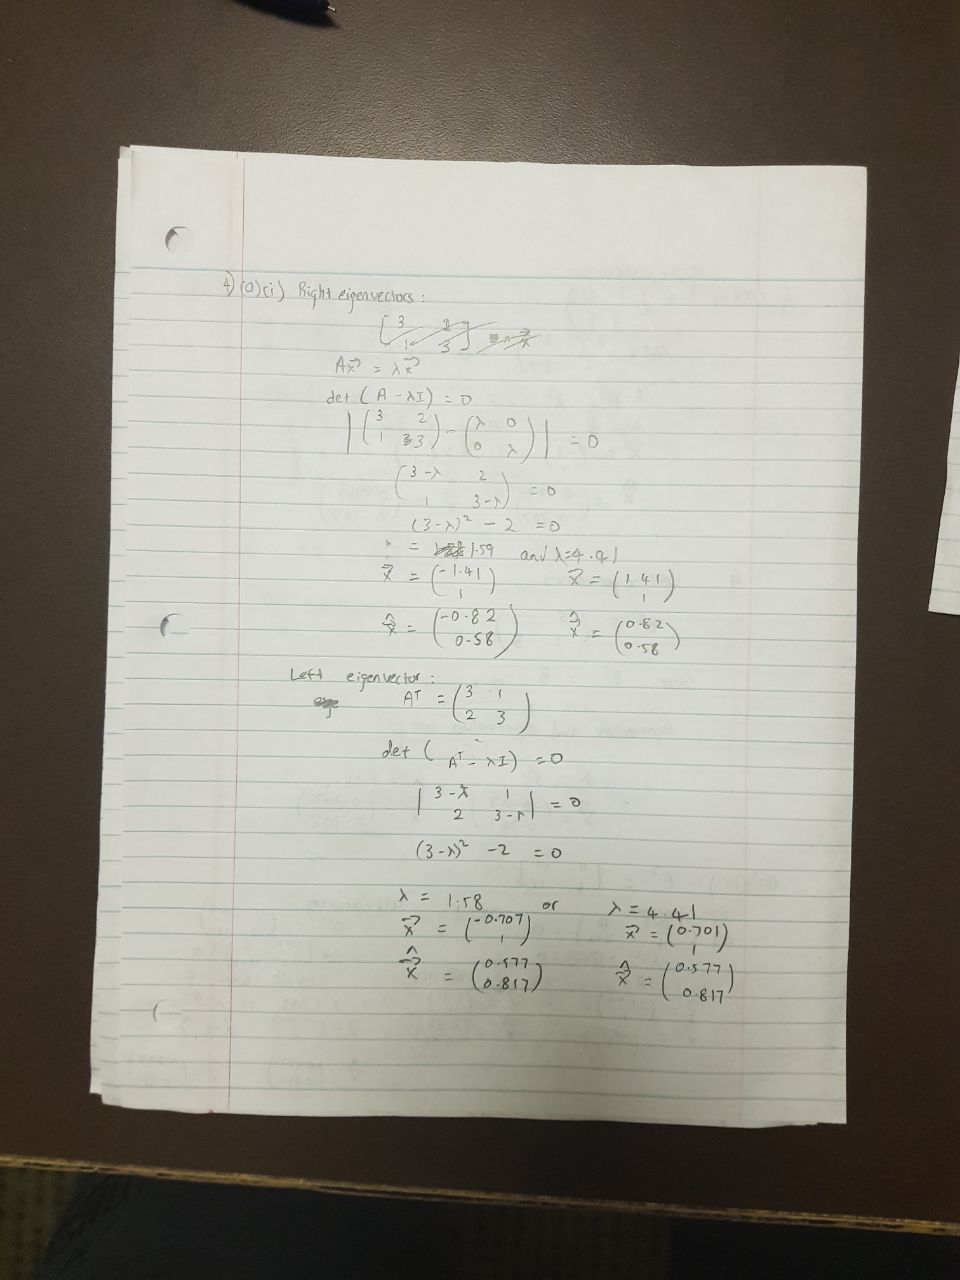 4) (a) (i) Right eigenvectors :
[ 3 2
1 3 ] = λ x⃗
A x⃗ = λ x⃗
det ( A - λI ) = 0
| ( 3 2
1 3 ) - ( λ 0
0 λ ) | = 0
( 3-λ 2
1 3-λ ) = 0
(3-λ)² - 2 = 0
= 1.59 and λ=4.41
x⃗ = ( -1.41
1 ) x⃗ = ( 1.41
1 )
x̂ = ( -0.82
0.58 ) x̂ = ( 0.82
0.58 )
Left eigenvector :
Aᵀ = ( 3 1
2 3 )
det ( Aᵀ - λI ) = 0
| 3-λ 1
2 3-λ | = 0
(3-λ)² - 2 = 0
λ = 1.58 or λ = 4.41
x⃗ = ( -0.707
1 ) x⃗ = ( 0.701
1 )
x̂ = ( 0.577
0.817 ) x̂ = ( 0.577
0.817 )